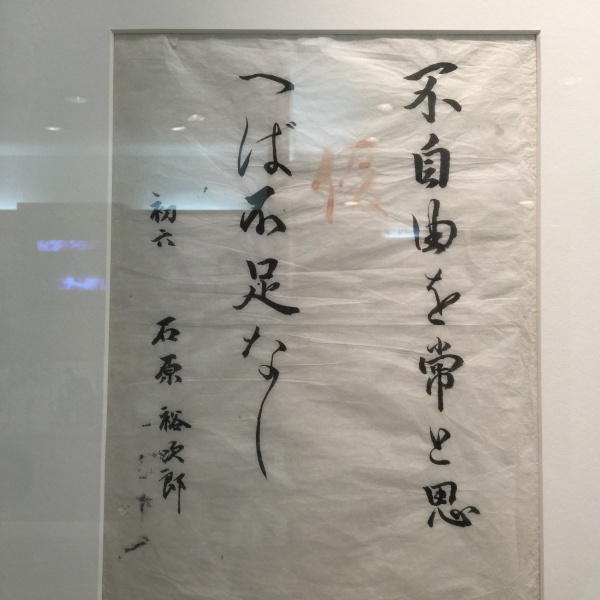 不自由を常と思
へば不足なし
初六
石原裕次郎